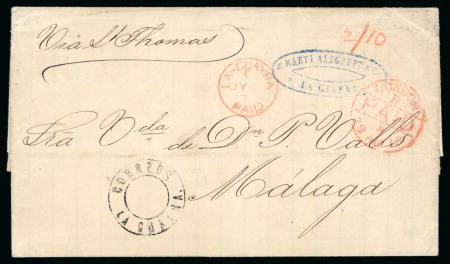 2/10
Via St Thomas
LA-GUAYRA
C
JY
7
PAID
MARTI ALEGRETT
LA GUAYRA
LONDON
PAID
29
Sra Vda de Dn P. Valls
Málaga
CORREOS
LA GUAIRA.